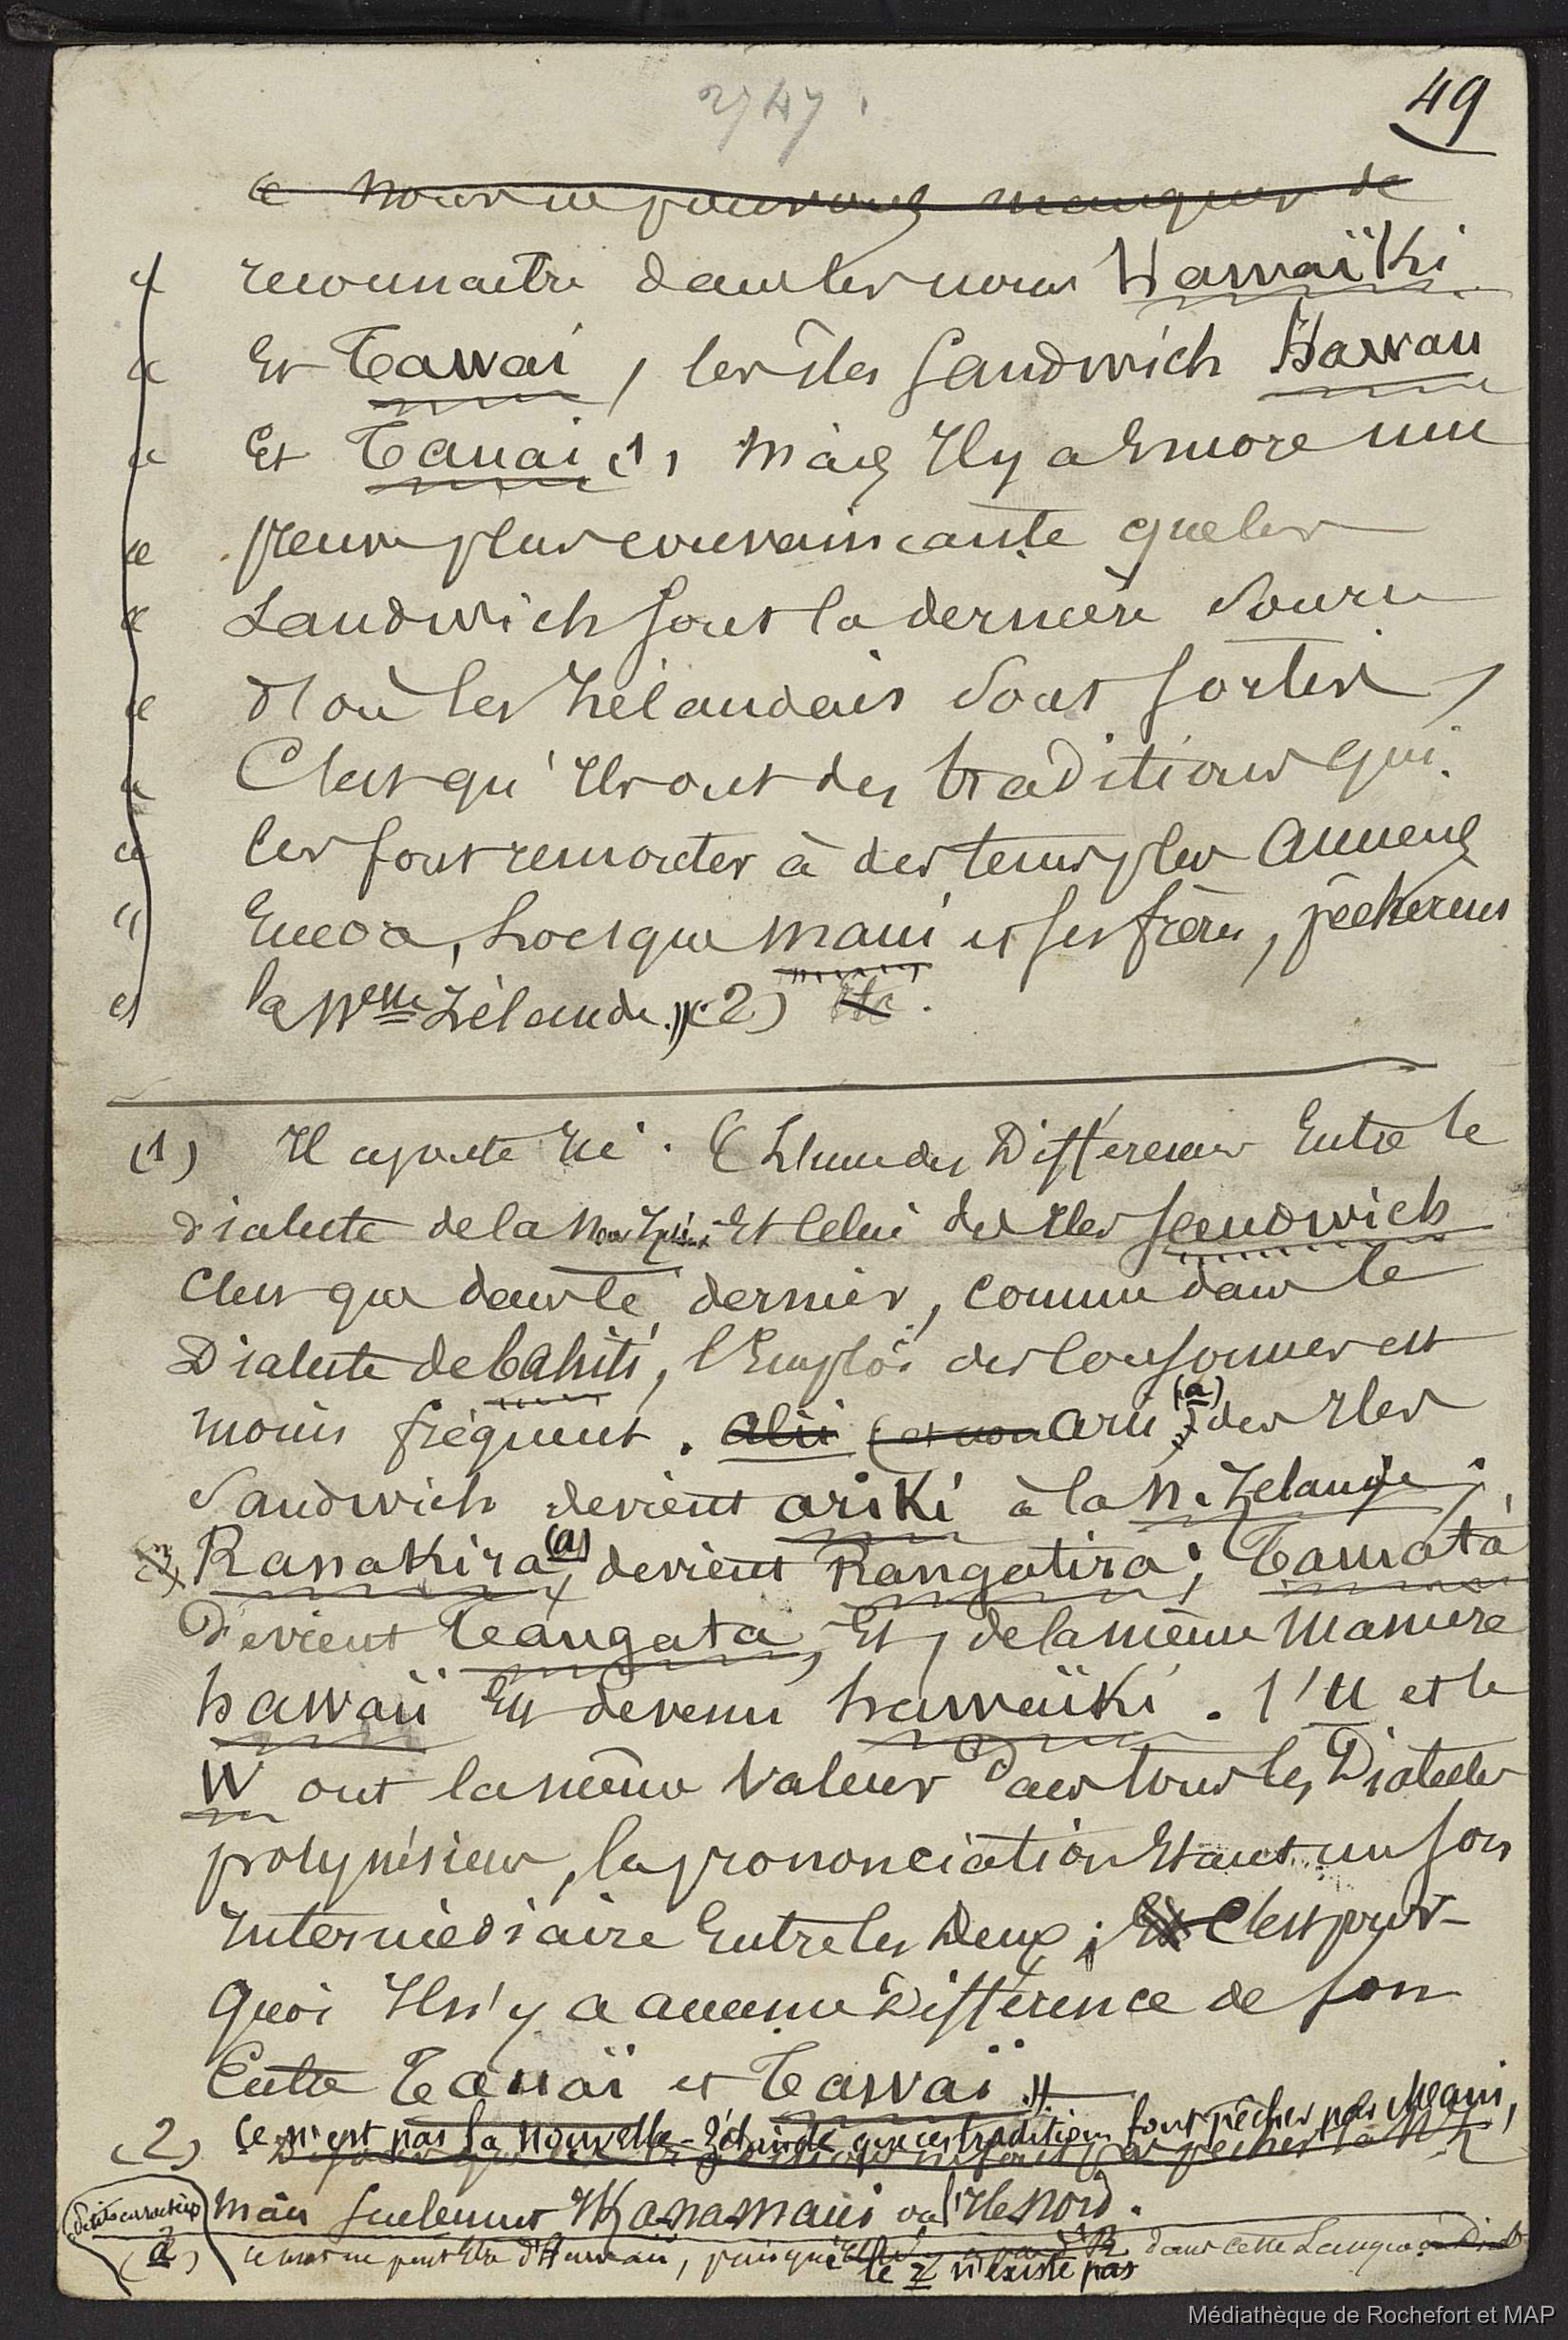 2747.
49
« nous ne pouvons manquer de
« reconnaitre dans les noms Hawaïki
« Et Tawai, les îles Sandwich Hawaii
« Et Tauai (1, mais Il y a Encore une
« preuve plus convaincante que les
« Sandwich sont la dernière source
« d'où les Zélandais sont sortis,
« C'est qu'Ils ont des traditions qui
« les font remonter à des tems plus anciens
« Encore, lorsque Maui et ses frères, pêchèrent
« la Nelle Zélande.» (2) etc.
(1) Il ajoute ici. « L'une des Différences Entre le
dialecte de la Nou Zél. Et celui des Iles Sandwich
C'est que dans le dernier, comme dans le
Dialecte de Tahiti, l'Emploi des consonnes est
moins fréquent. alii (et non arii (a) des Iles
Sandwich devient ariki à la N. Zelande;
Ranakira (a), devient Rangatira; Tamata
Devient Tangata, Et, de la même manière
hawaii Est devenu hawaïki. l'u et le
W ont la même valeur dans tous les Dialectes
polynésiens, la prononciation Etant un son
Intermédiaire Entre les Deux; Et C'est pour-
quoi Il n'y a aucune Différence de son
Entre Tauaï et Tawaï.»
(2) Ce n'est pas la Nouvelle-Zélande que ces traditions font pêcher par Maui,
mais seulement Ikanamaui ou l'Ile Nord.
(petits caractères)
(a) ce mot ne peut Etre d'Hawaii, puisque le r n'existe pas dans cette Langue